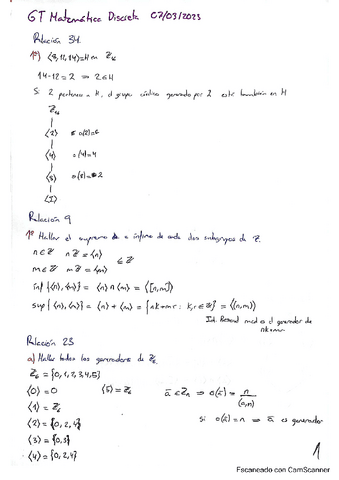 GT Matemática Discreta 07/03/2023
Relación 34.
1º) ⟨8,12,14⟩=H en Z₁₆
14-12=2 ⇒ 2∈H
Si 2 pertenece a H, el grupo cíclico generado por 2 está también en H
Z₁₆
|
⟨2⟩ o(2)=8
|
⟨4⟩ o(4)=4
|
⟨8⟩ o(8)=2
|
⟨1⟩
Relación 9
1º Hallar el supremo de e ínfimo de cada dos subgrupos de Z.
n∈Z nZ=⟨n⟩
m∈Z mZ=⟨m⟩ ≤Z
inf{⟨n⟩,⟨m⟩} = ⟨n⟩∩⟨m⟩ = ⟨[n,m]⟩
sup{⟨n⟩,⟨m⟩} = ⟨n⟩+⟨m⟩ = {nk+mr : k,r∈Z} = ⟨(n,m)⟩
Id. Bezout mcd es el generador de
nk+mr
Relación 23
a) Hallar todos los generadores de Z₆
Z₆={0,1,2,3,4,5}
⟨0⟩=0 ⟨5⟩=Z₆ ā∈Zₙ ⇒ o(ā)= n/(a,n)
⟨1⟩=Z₆
⟨2⟩={0,2,4} Si o(ā)=n ⇒ ā es generador
⟨3⟩={0,3}
⟨4⟩={0,2,4}
1
Escaneado con CamScanner